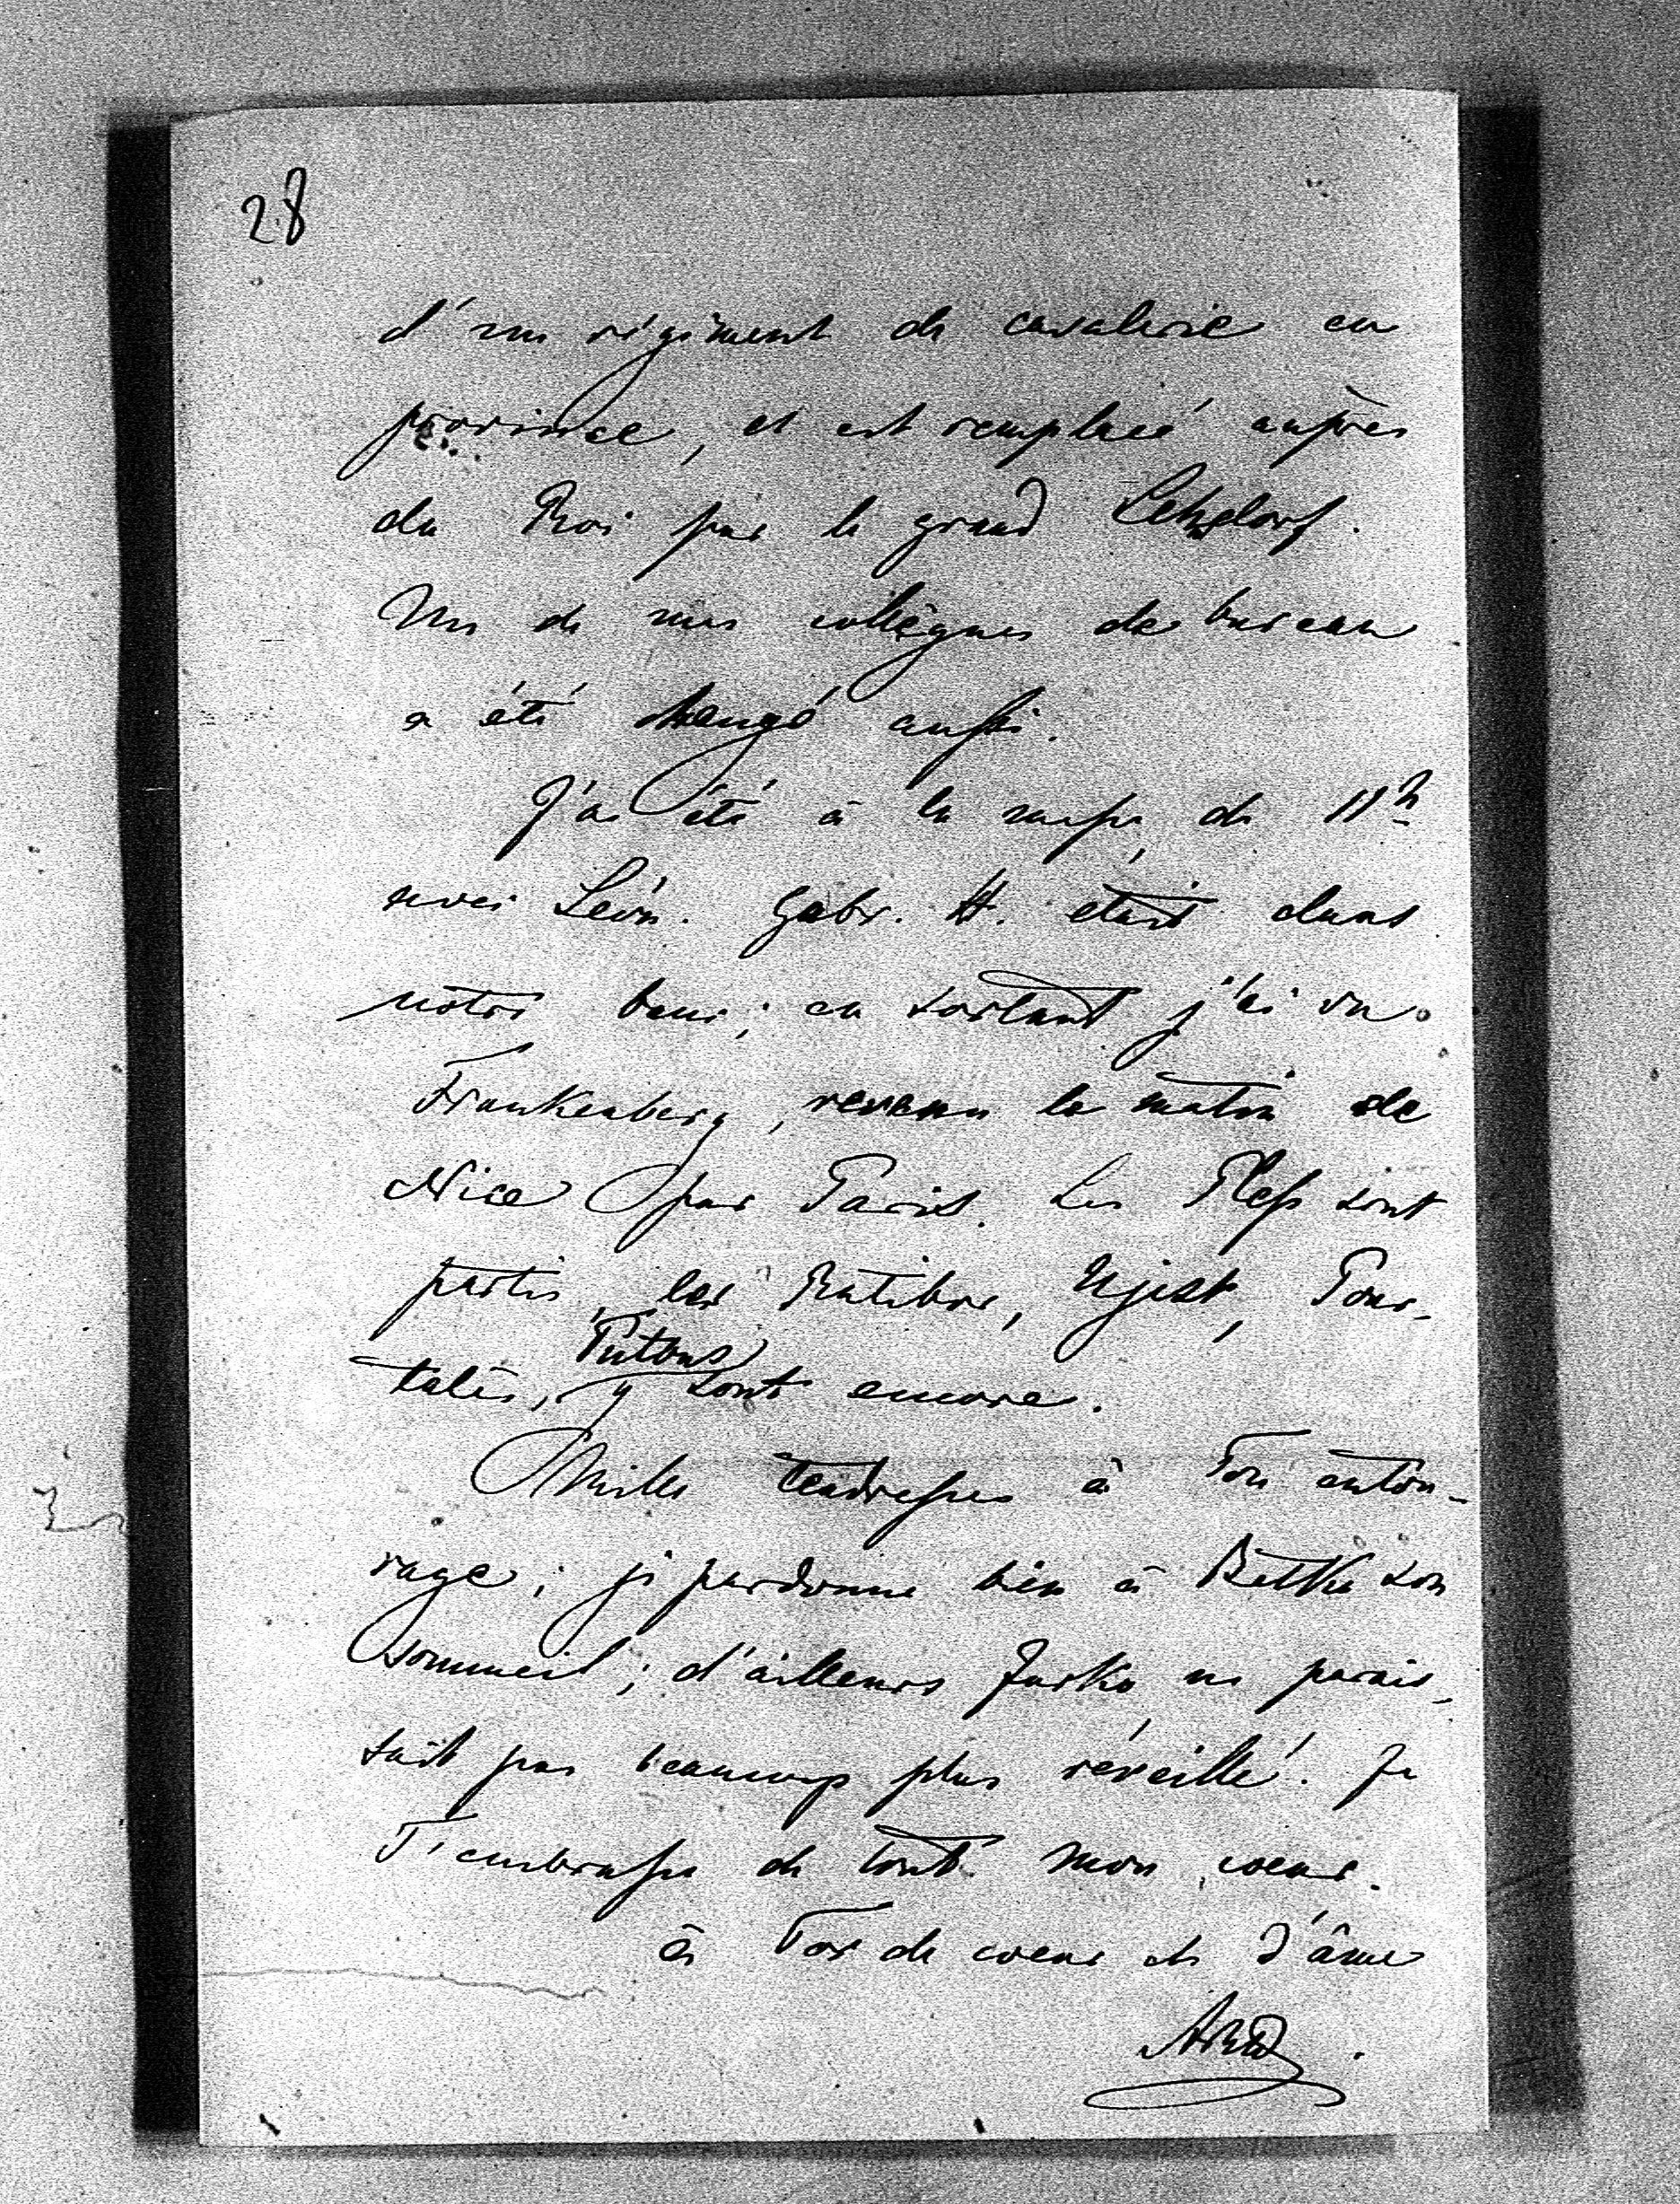 28
d'un régiment de cavalerie en
province, et est remplacé auprès
du Roi par le grand Lehndorf.
Un de mes collègues de bureau
a été changé aussi.
J'ai été à la messe de 11h
avec Léon. Gabr. H. était dans
notre banc; en sortant j'ai vu
Frankenberg, revenu le matin de
Nice par Paris. Les Pless sont
partis, les Ratibor, Ujest, Pour-
Putbus
talès, y sont encore.
Mille tendresses à Ton entou-
rage; je pardonne bien à Bethka son
sommeil; d'ailleurs Jurka ne parais-
sait pas beaucoup plus réveillé! Je
T'embrasse de tout mon coeur.
à Toi de coeur et d'âme